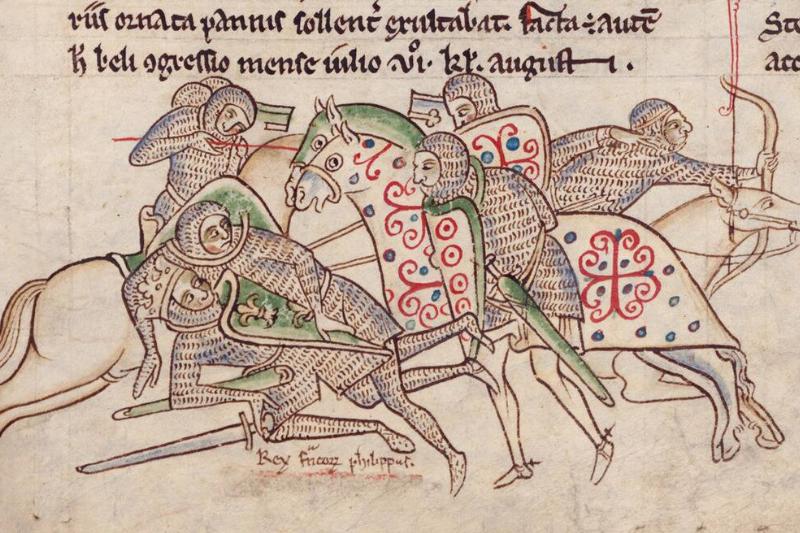 riis ornata pannis sollent᷑ exultabat. Facta ÷ autē
h̄ beli ꝯgressio mense iulio viͦ. kł. augusti.
Ste
acc
Rex francoꝝ philippus.